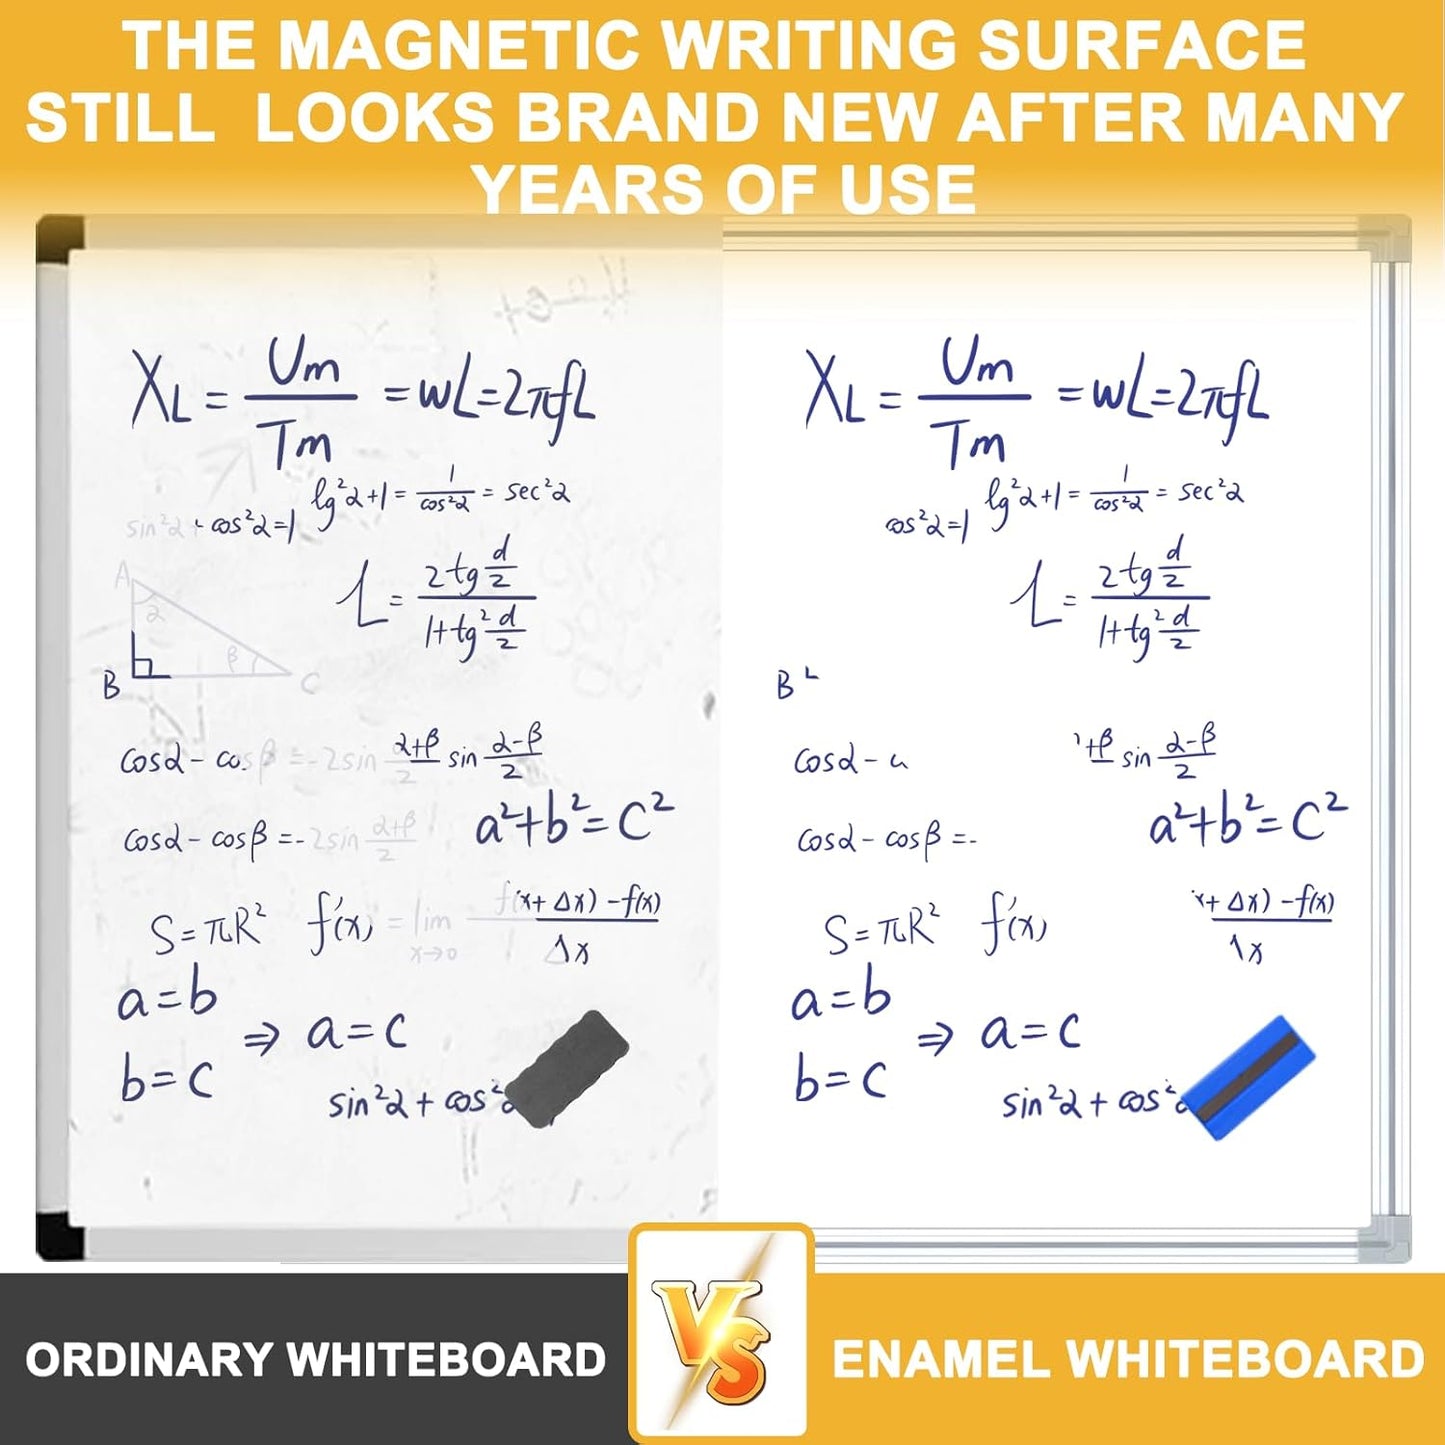 THE MAGNETIC WRITING SURFACE
STILL LOOKS BRAND NEW AFTER MANY
YEARS OF USE
X_L = Um/Tm = wL = 2πfL
lg²α+1 = 1/cos²α = sec²α
sin²α + cos²α=1
A
α
L = 2tg d/2 / 1+tg² d/2
β
B
C
cosα - cosβ = -2sin α+β/2 sin α-β/2
a²+b²=c²
cosα - cosβ = -2sin α+β/2
S=πR² f'(x) = lim x→0 f(x+Δx)-f(x)/Δx
a=b
⇒ a=c
b=c
sin²α + cos²
X_L = Um/Tm = wL = 2πfL
lg²α+1 = 1/cos²α = sec²α
cos²α=1
L = 2tg d/2 / 1+tg² d/2
B
cosα -
+β sin α-β/2
a²+b²=c²
cosα - cosβ = -
S=πR² f'(x)
x+Δx)-f(x)
x
a=b
⇒ a=c
b=c
sin²α + cos²
ORDINARY WHITEBOARD
VS
ENAMEL WHITEBOARD